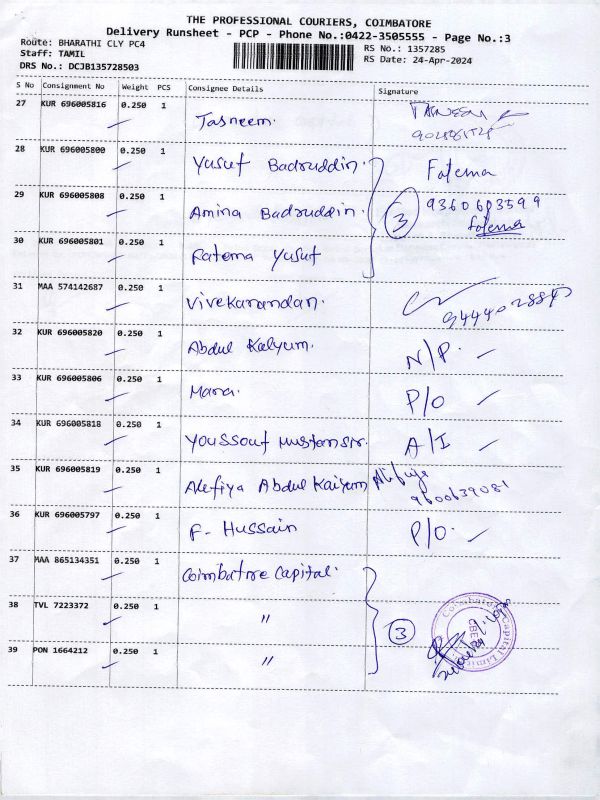 THE PROFESSIONAL COURIERS, COIMBATORE
Delivery Runsheet - PCP - Phone No.:0422-3505555 - Page No.:3
Route: BHARATHI CLY PC4
Staff: TAMIL
DRS No.: DCJB135728503
RS No.: 1357285
RS Date: 24-Apr-2024
S No Consignment No Weight PCS Consignee Details Signature
27 KUR 696005816 0.250 1 Tasneem.
28 KUR 696005800 0.250 1 Yusuf Badruddin. Fatema
29 KUR 696005808 0.250 1 Amina Badruddin. 3 9360603599
Fatema
30 KUR 696005801 0.250 1 Fatema Yusuf
31 MAA 574142687 0.250 1 Vivekanandan.
32 KUR 696005820 0.250 1 Abdul Kalyum. N/P.
33 KUR 696005806 0.250 1 Maria. P/O
34 KUR 696005818 0.250 1 Youssouf Mustansir. A/I
35 KUR 696005819 0.250 1 Alefiya Abdul Kaiyum 9600639081
36 KUR 696005797 0.250 1 F. Hussain P/O.
37 MAA 865134351 0.250 1 Coimbatore Capital.
38 TVL 7223372 0.250 1 " 3
39 PON 1664212 0.250 1 "
Coimbatore Capital Limited